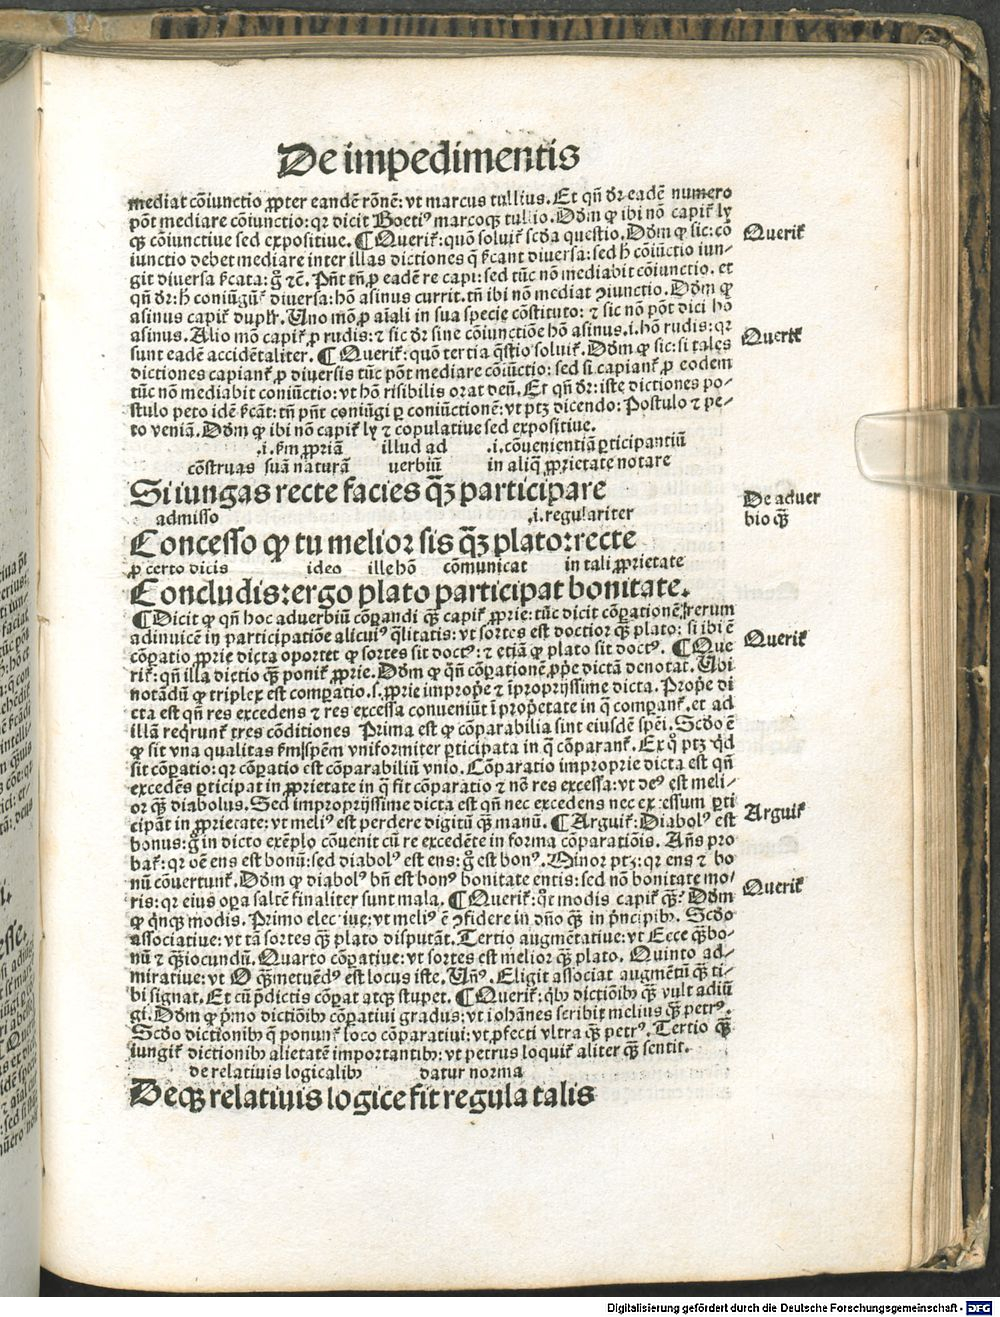 De impedimentis
mediat cõiunctio ꝓpter eandẽ rõnẽ: vt marcus tullius. Et qñ dr̃ eadẽ numero
põt mediare cõiunctio: qr dicit Boetiꝰ marcoqꝫ tullio. Dõm ꝙ ibi nõ capit᷑ ly
qꝫ cõiunctiue sed expositiue. ¶ Querit᷑: quõ soluit᷑ scd̃a questio. Dõm ꝙ sic: cõ
Querit᷑
iunctio debet mediare inter illas dictiones q̃ ſicant diuersa: sed h̃ cõiũctio iun⸗
git diuersa ſicata: g̊ ⁊c̃. Pñt tñ ꝓ eadẽ re capi: sed tũc nõ mediabit cõiunctio. et
qñ dr̃: h̃ coniũgũt᷑ diuersa: hõ asinus currit. tñ ibi nõ mediat ꝯiunctio. Dõm ꝙ
asinus capit᷑ duplr̃. Uno mõ ꝓ aĩali in sua specie cõstituto: ⁊ sic nõ põt dici hõ
asinus. Alio mõ capit᷑ ꝓ rudis: ⁊ sic dr̃ sine cõiunctiõe hõ asinus .i. hõ rudis: qr
Querit᷑
sunt eadẽ accidẽtaliter. ¶ Querit᷑: quõ tertia q̃stio soluit᷑. Dõm ꝙ sic: si tales
dictiones capiant᷑ ꝓ diuersis tũc põt mediare cõiũctio: sed si capiant᷑ ꝓ eodem
tũc nõ mediabit coniũctio: vt hõ risibilis orat deũ. Et qñ dr̃: iste dictiones po⸗
stulo peto idẽ ſicãt: tñ pñt coniũgi ꝑ coniũctionẽ: vt ptꝫ dicendo: Postulo ⁊ pe⸗
to veniã. Dõm ꝙ ibi nõ capit᷑ ly ⁊ copulatiue sed expositiue.
.i. ẜm ꝓpriã illud ad .i. cõuenientiã ꝑticipantiũ
cõstruas suã naturã uerbiũ in aliq̃ ꝓprietate notare
Si iungas recte facies q̃ꝫ participare
De aduer
bio q̃ꝫ
admisso .i. regulariter
Concesso ꝙ tu melior sis q̃ꝫ plato: recte
ꝓ certo dicis ideo ille hõ cõmunicat in tali ꝓprietate
Concludis: ergo plato participat bonitate.
¶ Dicit ꝙ qñ hoc aduerbiũ cõꝑandi q̃ꝫ capit᷑ ꝓprie: tũc dicit cõꝑationẽ rerum
adinuicẽ in participatiõe alicuiꝰ q̃litatis: vt sortes est doctior q̃ꝫ plato: si ibi ẽ
Querit᷑
cõꝑatio ꝓprie dicta oportet ꝙ sortes sit doctꝰ: ⁊ etiã ꝙ plato sit doctꝰ. ¶ Que
rit᷑: qñ illa dictio q̃ꝫ ponit᷑ ꝓprie. Dõm ꝙ qñ cõꝑationẽ ꝓp̃e dictã denotat. Ubi
notãdũ ꝙ triplex est comꝑatio .s. ꝓprie improp̃e ⁊ ĩproprijssime dicta. Prop̃e di
cta est qñ res excedens ⁊ res excessa conueniũt ĩ prop̃etate in q̃ comꝑant᷑. et ad
illã reqrunt᷑ tres cõditiones Prima est ꝙ cõparabilia sint eiusdẽ spẽi. Scd̃o ẽ
ꝙ sit vna qualitas ẜm spẽm vniformiter ꝑticipata in q̃ cõparant᷑. Ex q̊ ptꝫ q̛d
sit cõꝑatio: qr cõꝑatio est cõparabiliũ vnio. Cõparatio improprie dicta est qñ
excedẽs ꝑticipat in ꝓprietate in q̃ fit cõparatio ⁊ nõ res excessa: vt deꝰ est meli⸗
or q̃ꝫ diabolus. Sed improprijssime dicta est qñ nec excedens nec excessum ꝑti
cipãt in ꝓprietate: vt meliꝰ est perdere digitũ q̃ꝫ manũ. ¶ Arguit᷑: Diabolꝰ est
Arguit᷑
bonus: g̊ in dicto exẽplo cõuenit cũ re excedẽte in forma cõparatiõis. Añs pro
bat᷑: qr oẽ ens est bonũ: sed diabolꝰ est ens: g̊ est bonꝰ. Minor ptꝫ: qr ens ⁊ bo
nũ cõuertunt᷑. Dõm ꝙ diabolꝰ bñ est bonꝰ bonitate entis: sed nõ bonitate mo⸗
Querit᷑
ris: qr eius oꝑa saltẽ finaliter sunt mala. ¶ Querit᷑: q̊t modis capit᷑ q̃ꝫ? Dõm
ꝙ q̛nqꝫ modis. Primo electiue: vt meliꝰ ẽ ꝯfidere in dño q̃ꝫ in p̛ncipibꝫ. Scd̃o
associatiue: vt tã sortes q̃ꝫ plato disputãt. Tertio augmẽtatiue: vt Ecce q̃ꝫ bo⸗
nũ ⁊ q̃ꝫ iocundũ. Quarto cõꝑatiue: vt sortes est melior q̃ꝫ plato. Quinto ad⸗
miratiue: vt O q̃ꝫ metuẽdꝰ est locus iste. Uñꝰ. Eligit associat augmẽtũ q̃ꝫ ti⸗
bi signat. Et cũ p̃dictis cõꝑat atqꝫ stupet. ¶ Querit᷑: q̛bꝫ dictiõibꝫ q̃ꝫ vult adiũ
gi. Dõm ꝙ p̛mo dictiõibꝫ cõꝑatiui gradus: vt iohãnes scribit melius q̃ꝫ petrꝰ.
Scd̃o dictionibꝫ q̃ ponunt᷑ loco cõparatiui: vt ꝓfecti vltra q̃ꝫ petrꝰ. Tertio q̃ꝫ
iungit᷑ dictionibꝫ alietatẽ importantibꝫ: vt petrus loquit᷑ aliter q̃ꝫ sentit.
de relatiuis logicalibꝫ datur norma
Deqꝫ relatiuis logice fit regula talis
Digitalisierung gefördert durch die Deutsche Forschungsgemeinschaft - DFG